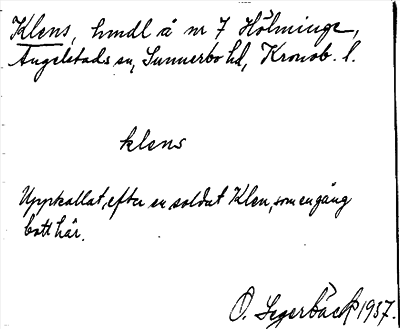 Klens, hmdl å nr 7 Hölminge,
Angelstads sn, Sunnerbo hd, Kronob. l.
klens
Uppkallat efter en soldat Klen, som en gång
bott här.
O. Segerbäck 1937.